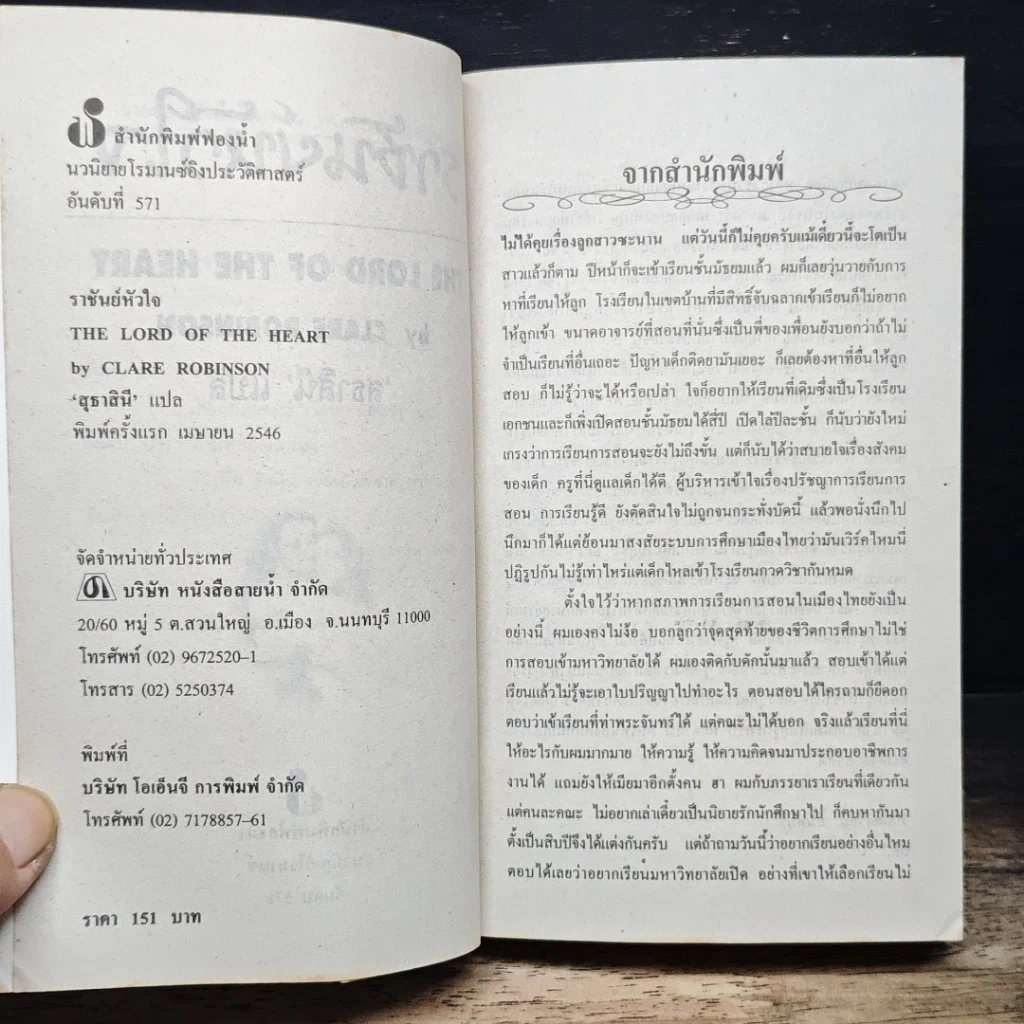 สำนักพิมพ์ฟองน้ำ
นวนิยายโรมานซ์อิงประวัติศาสตร์
อันดับที่ 571
ราชันย์หัวใจ
THE LORD OF THE HEART
by CLARE ROBINSON
'สุธาสินี' แปล
พิมพ์ครั้งแรก เมษายน 2546
จัดจำหน่ายทั่วประเทศ
บริษัท หนังสือสายน้ำ จำกัด
20/60 หมู่ 5 ต.สวนใหญ่ อ.เมือง จ.นนทบุรี 11000
โทรศัพท์ (02) 9672520-1
โทรสาร (02) 5250374
พิมพ์ที่
บริษัท โอเอ็นจี การพิมพ์ จำกัด
โทรศัพท์ (02) 7178857-61
ราคา 151 บาท
จากสำนักพิมพ์
ไม่ได้คุยเรื่องลูกสาวซะนาน แต่วันนี้ก็ไม่คุยครับแม้เดี๋ยวนี้จะโตเป็น
สาวแล้วก็ตาม ปีหน้าก็จะเข้าเรียนชั้นมัธยมแล้ว ผมก็เลยวุ่นวายกับการ
หาที่เรียนให้ลูก โรงเรียนในเขตบ้านที่มีสิทธิ์จับฉลากเข้าเรียนก็ไม่อยาก
ให้ลูกเข้า ขนาดอาจารย์ที่สอนที่นั่นซึ่งเป็นพี่ของเพื่อนยังบอกว่าถ้าไม่
จำเป็นเรียนที่อื่นเถอะ ปัญหาเด็กติดยามันเยอะ ก็เลยต้องหาที่อื่นให้ลูก
สอบ ก็ไม่รู้ว่าจะได้หรือเปล่า ใจก็อยากให้เรียนที่เดิมซึ่งเป็นโรงเรียน
เอกชนและก็เพิ่งเปิดสอนชั้นมัธยมได้สี่ปี เปิดไล่ปีละชั้น ก็นับว่ายังใหม่
เกรงว่าการเรียนการสอนจะยังไม่ถึงขั้น แต่ก็นับได้ว่าสบายใจเรื่องสังคม
ของเด็ก ครูที่นี่ดูแลเด็กได้ดี ผู้บริหารเข้าใจเรื่องปรัชญาการเรียนการ
สอน การเรียนรู้ดี ยังตัดสินใจไม่ถูกจนกระทั่งบัดนี้ แล้วพอนั่งนึกไป
นึกมาก็ได้แต่ย้อนมาสงสัยระบบการศึกษาเมืองไทยว่ามันเวิร์คไหมนี่
ปฏิรูปกันไม่รู้เท่าไหร่แต่เด็กไหลเข้าโรงเรียนกวดวิชากันหมด
ตั้งใจไว้ว่าหากสภาพการเรียนการสอนในเมืองไทยยังเป็น
อย่างนี้ ผมเองคงไม่ง้อ บอกลูกว่าจุดสุดท้ายของชีวิตการศึกษาไม่ใช่
การสอบเข้ามหาวิทยาลัยได้ ผมเองติดกับดักนั้นมาแล้ว สอบเข้าได้แต่
เรียนแล้วไม่รู้จะเอาใบปริญญาไปทำอะไร ตอนสอบได้ใครถามก็ยืดอก
ตอบว่าเข้าเรียนที่ท่าพระจันทร์ได้ แต่คณะไม่ได้บอก จริงแล้วเรียนที่นี่
ให้อะไรกับผมมากมาย ให้ความรู้ ให้ความคิดจนมาประกอบอาชีพการ
งานได้ แถมยังให้เมียมาอีกตั้งคน ฮา ผมกับภรรยาเราเรียนที่เดียวกัน
แต่คนละคณะ ไม่อยากเล่าเดี๋ยวเป็นนิยายรักนักศึกษาไป ก็คบหากันมา
ตั้งเป็นสิบปีจึงได้แต่งกันครับ แต่ถ้าถามวันนี้ว่าอยากเรียนอย่างอื่นไหม
ตอบได้เลยว่าอยากเรียนมหาวิทยาลัยเปิด อย่างที่เขาให้เลือกเรียนไม่